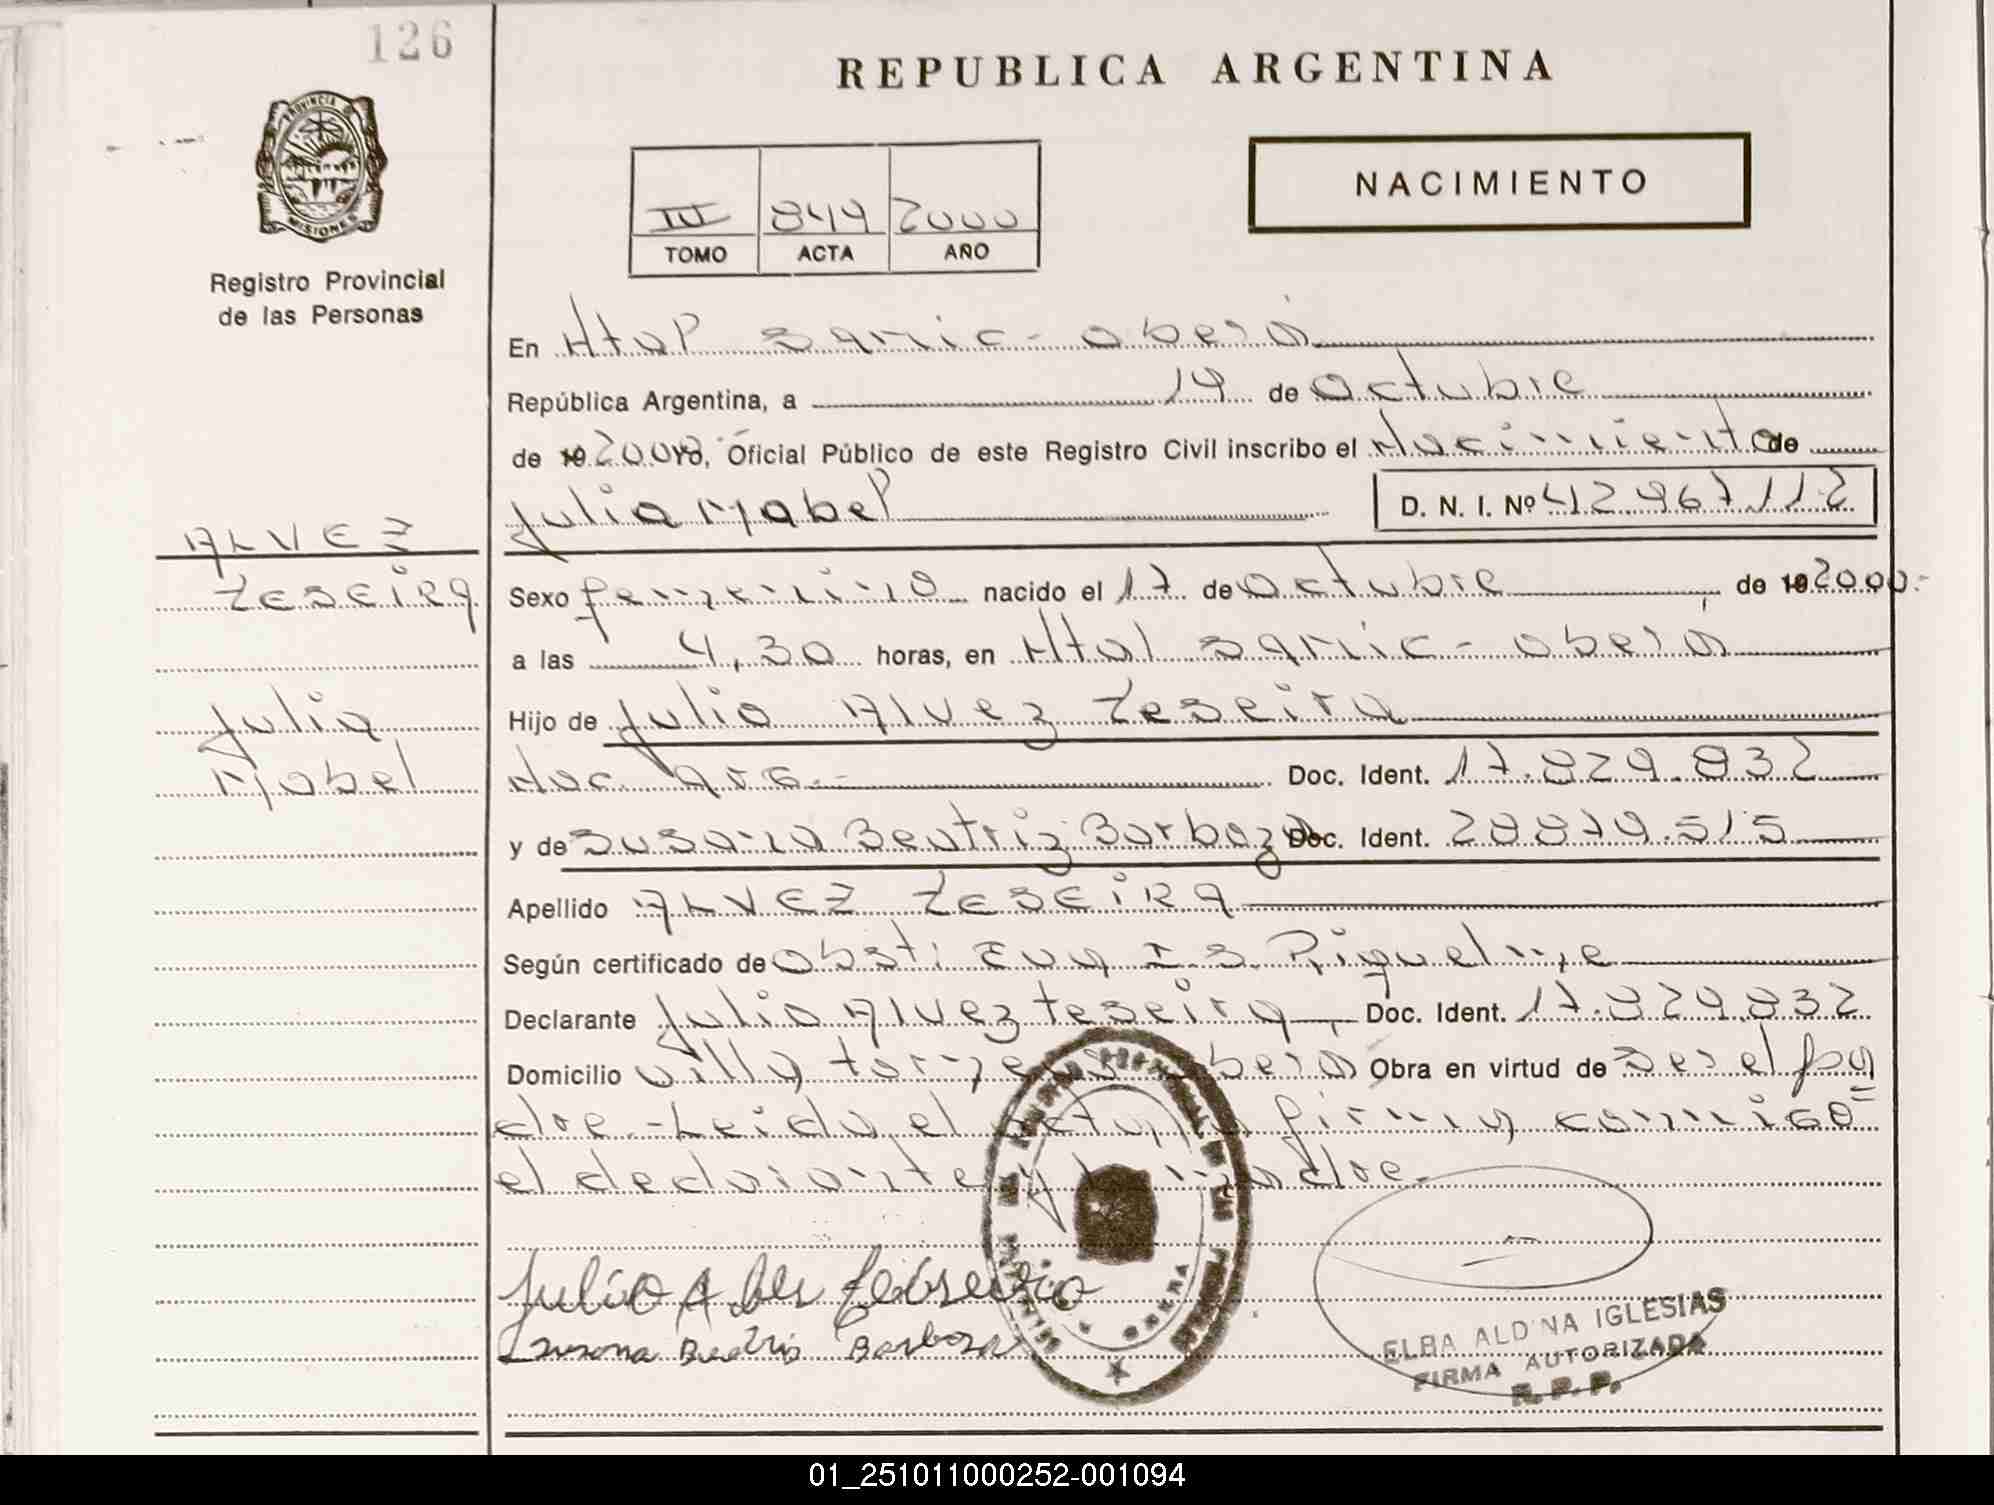 126
REPUBLICA ARGENTINA
PROVINCIA DE
MISIONES
Registro Provincial
de las Personas
III 849 2000
TOMO ACTA AÑO
NACIMIENTO
En Htal samic - obera
República Argentina, a 19 de octubre
de 19 2000 yo, Oficial Público de este Registro Civil inscribo el Nacimiento de
Julia Mabel D. N. I. Nº 42.967.112
ALVEZ
Teseira
Julia
Mabel
Sexo femenino nacido el 17 de octubre, de 19 2000.-
a las 4,30 horas, en Htal samic - obera
Hijo de Julio Alvez Teseira
Nac arg.- Doc. Ident. 17.829.832
y de susana Beatriz Barboza Doc. Ident. 28.879.515
Apellido ALVEZ TESEIRA
Según certificado de obst. Eva I. S. Riquelme
Declarante Julio Alvez teseira, Doc. Ident. 17.829.832
Domicilio villa torneus obera Obra en virtud de ser el pa
dre.-Leida el acta, la firma conmigo
el declarante y la madre.
Susana Beatris Barboza
OBERA
ELBA ALDINA IGLESIAS
FIRMA AUTORIZADA
R. P. P.
01_251011000252-001094